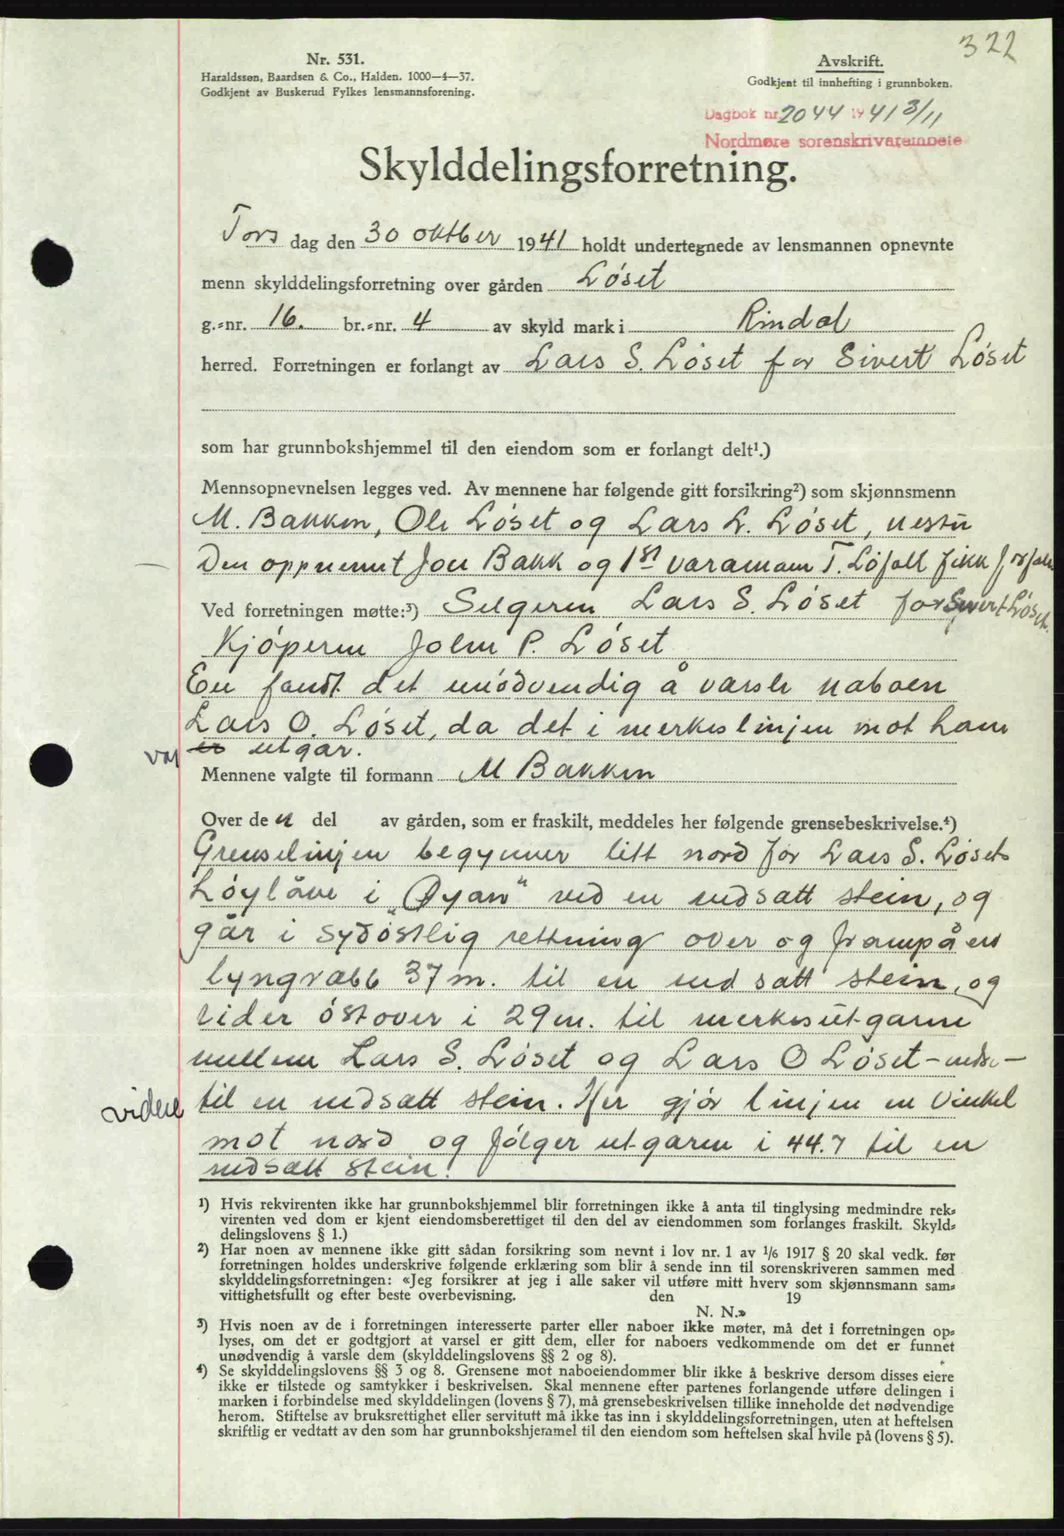 322
Nr. 531.
Haraldssøn, Baardsen & Co., Halden. 1000—4—37.
Godkjent av Buskerud Fylkes lensmannsforening.
Avskrift.
Godkjent til innhefting i grunnboken.
Dagbok nr 2044 19 41 3/11
Nordmøre sorenskriverembete
Skylddelingsforretning.
Tors dag den 30 oktber 1941 holdt undertegnede av lensmannen opnevnte
menn skylddelingsforretning over gården Løset
g.-nr. 16. br.-nr. 4 av skyld mark i Rindal
herred. Forretningen er forlangt av Lars S. Løset for Sivert Løset
som har grunnbokshjemmel til den eiendom som er forlangt delt¹.)
Mennsopnevnelsen legges ved. Av mennene har følgende gitt forsikring²) som skjønnsmenn
M. Bakken, Ole Løset og Lars L. Løset,
Den oppnemnt Jon Bakk og 1st varamann T. Løfall fikk forfall
Ved forretningen møtte:³) Selgeren Lars S. Løset for Sivert Løset.
Kjøperen John P. Løset
En fandt det unødvendig å varsle naboen
Lars O. Løset, da det i merkeslinjen mot ham
var er utgar.
Mennene valgte til formann M Bakken
Over de n del av gården, som er fraskilt, meddeles her følgende grensebeskrivelse.⁴)
Grenselinjen begynner litt nord for Lars S. Løsets
Løylåve i „Øyan" ved en nedsatt stein, og
går i sydøstlig rettning over og frampå en
lyngrabb 37 m. til en ned satt stein, og
vider østover i 29 m. til merkesutgarne
mellem Lars S. Løset og Lars O Løset –
videre til en nedsatt stein. Her gjør linjen en vinkel
mot nord og følger utgaren i 44.7 til en
nedsatt stein.
¹) Hvis rekvirenten ikke har grunnbokshjemmel blir forretningen ikke å anta til tinglysing medmindre rek-
virenten ved dom er kjent eiendomsberettiget til den del av eiendommen som forlanges fraskilt. Skyld-
delingslovens § 1.)
²) Har noen av mennene ikke gitt sådan forsikring som nevnt i lov nr. 1 av ¹/₆ 1917 § 20 skal vedk. før
forretningen holdes underskrive følgende erklæring som blir å sende inn til sorenskriveren sammen med
skylddelingsforretningen: «Jeg forsikrer at jeg i alle saker vil utføre mitt hverv som skjønnsmann sam-
vittighetsfullt og efter beste overbevisning. den 19
N. N.»
³) Hvis noen av de i forretningen interesserte parter eller naboer ikke møter, må det i forretningen op-
lyses, om det er godtgjort at varsel er gitt dem, eller for naboers vedkommende om det er funnet
unødvendig å varsle dem (skylddelingslovens §§ 2 og 8).
⁴) Se skylddelingslovens §§ 3 og 8. Grensene mot naboeiendommer blir ikke å beskrive dersom disses eiere
ikke er tilstede og samtykker i beskrivelsen. Skal mennene efter partenes forlangende utføre delingen i
marken i forbindelse med skylddelingen (lovens § 7), må grensebeskrivelsen tillike inneholde det nødvendige
herom. Stiftelse av bruksrettighet eller servitutt må ikke tas inn i skylddelingsforretningen, uten at heftelsen
skriftlig er vedtatt av den som har grunnbokshjemmel til den eiendom som heftelsen skal hvile på (lovens § 5).